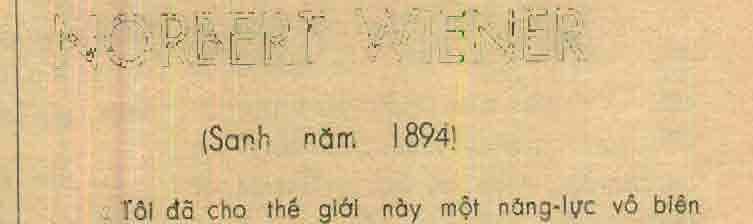 NORBERT WIENER
(Sanh năm 1894)
Tôi đã cho thế giới này một năng-lực vô biên